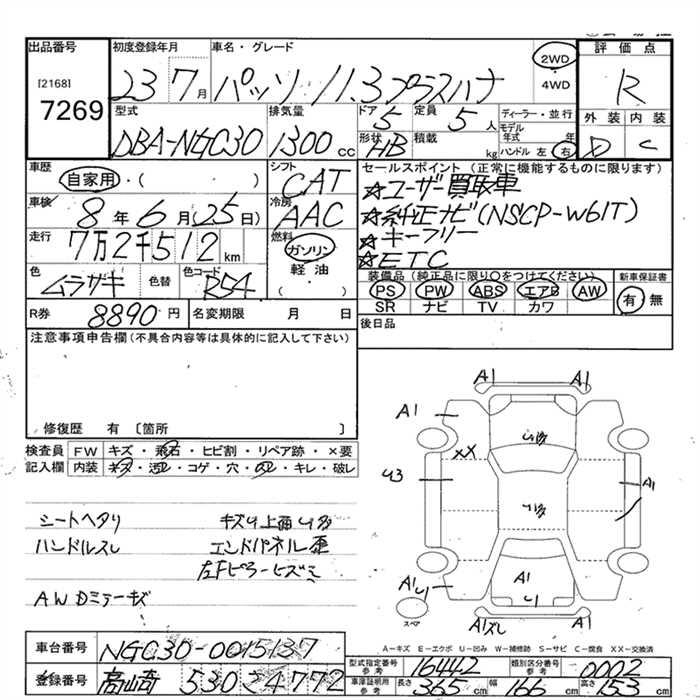 出品番号 初度登録年月 車名・グレード 評価点
[2168] 7269
23 7月 パッソ 1.3プラスハナ 2WD 4WD R
型式 排気量 ドア 定員 ディーラー・並行 外装 内装
DBA-NGC30 1300cc 5 5人 モデル年式 年 D C
形状 HB 積載 kg ハンドル 左 右
車歴 シフト セールスポイント(正常に機能するものに限ります)
自家用・( ) CAT ☆ユーザー買取車
車検 冷房 ☆純正ナビ(NSCP-W61T)
8年6月25日) AAC ☆キーフリー
走行 燃料 ☆ETC
7万2千512km ガソリン
色 色替 色コード 軽油 装備品(純正品に限り○をつけてください) 新車保証書
ムラサキ R54 ( ) PS PW ABS エアB AW 有 無
SR ナビ TV カワ
R券 8890円 名変期限 月 日 後日品
注意事項申告欄(不具合内容等は具体的に記入して下さい)
修復歴 有 〔箇所 〕
検査員 FW キズ・飛石・ヒビ割・リペア跡・×要
記入欄 内装 キズ・汚レ・コゲ・穴・凹・キレ・破レ
A1 A1
A1
XX
U3 A1
A1 U1 A1
U1
A1
スペア
シートヘタリ
ハンドルスレ エンドパネル歪
左Fピラーヒズミ
AWDミラーキズ
A-キズ E-エクボ U-凹み W-補修跡 S-サビ C-腐食 XX-交換済
車台番号 NGC30-0015137
型式指定番号 参考 16442 類別区分番号 参考 0002
登録番号 530 24772
車庫証明用 参考 長さ 365cm 幅 166cm 高さ 153cm